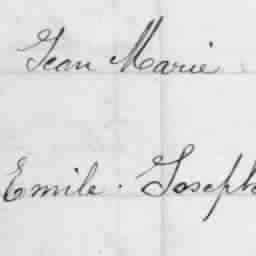 Jean Marie
Emile. Joseph